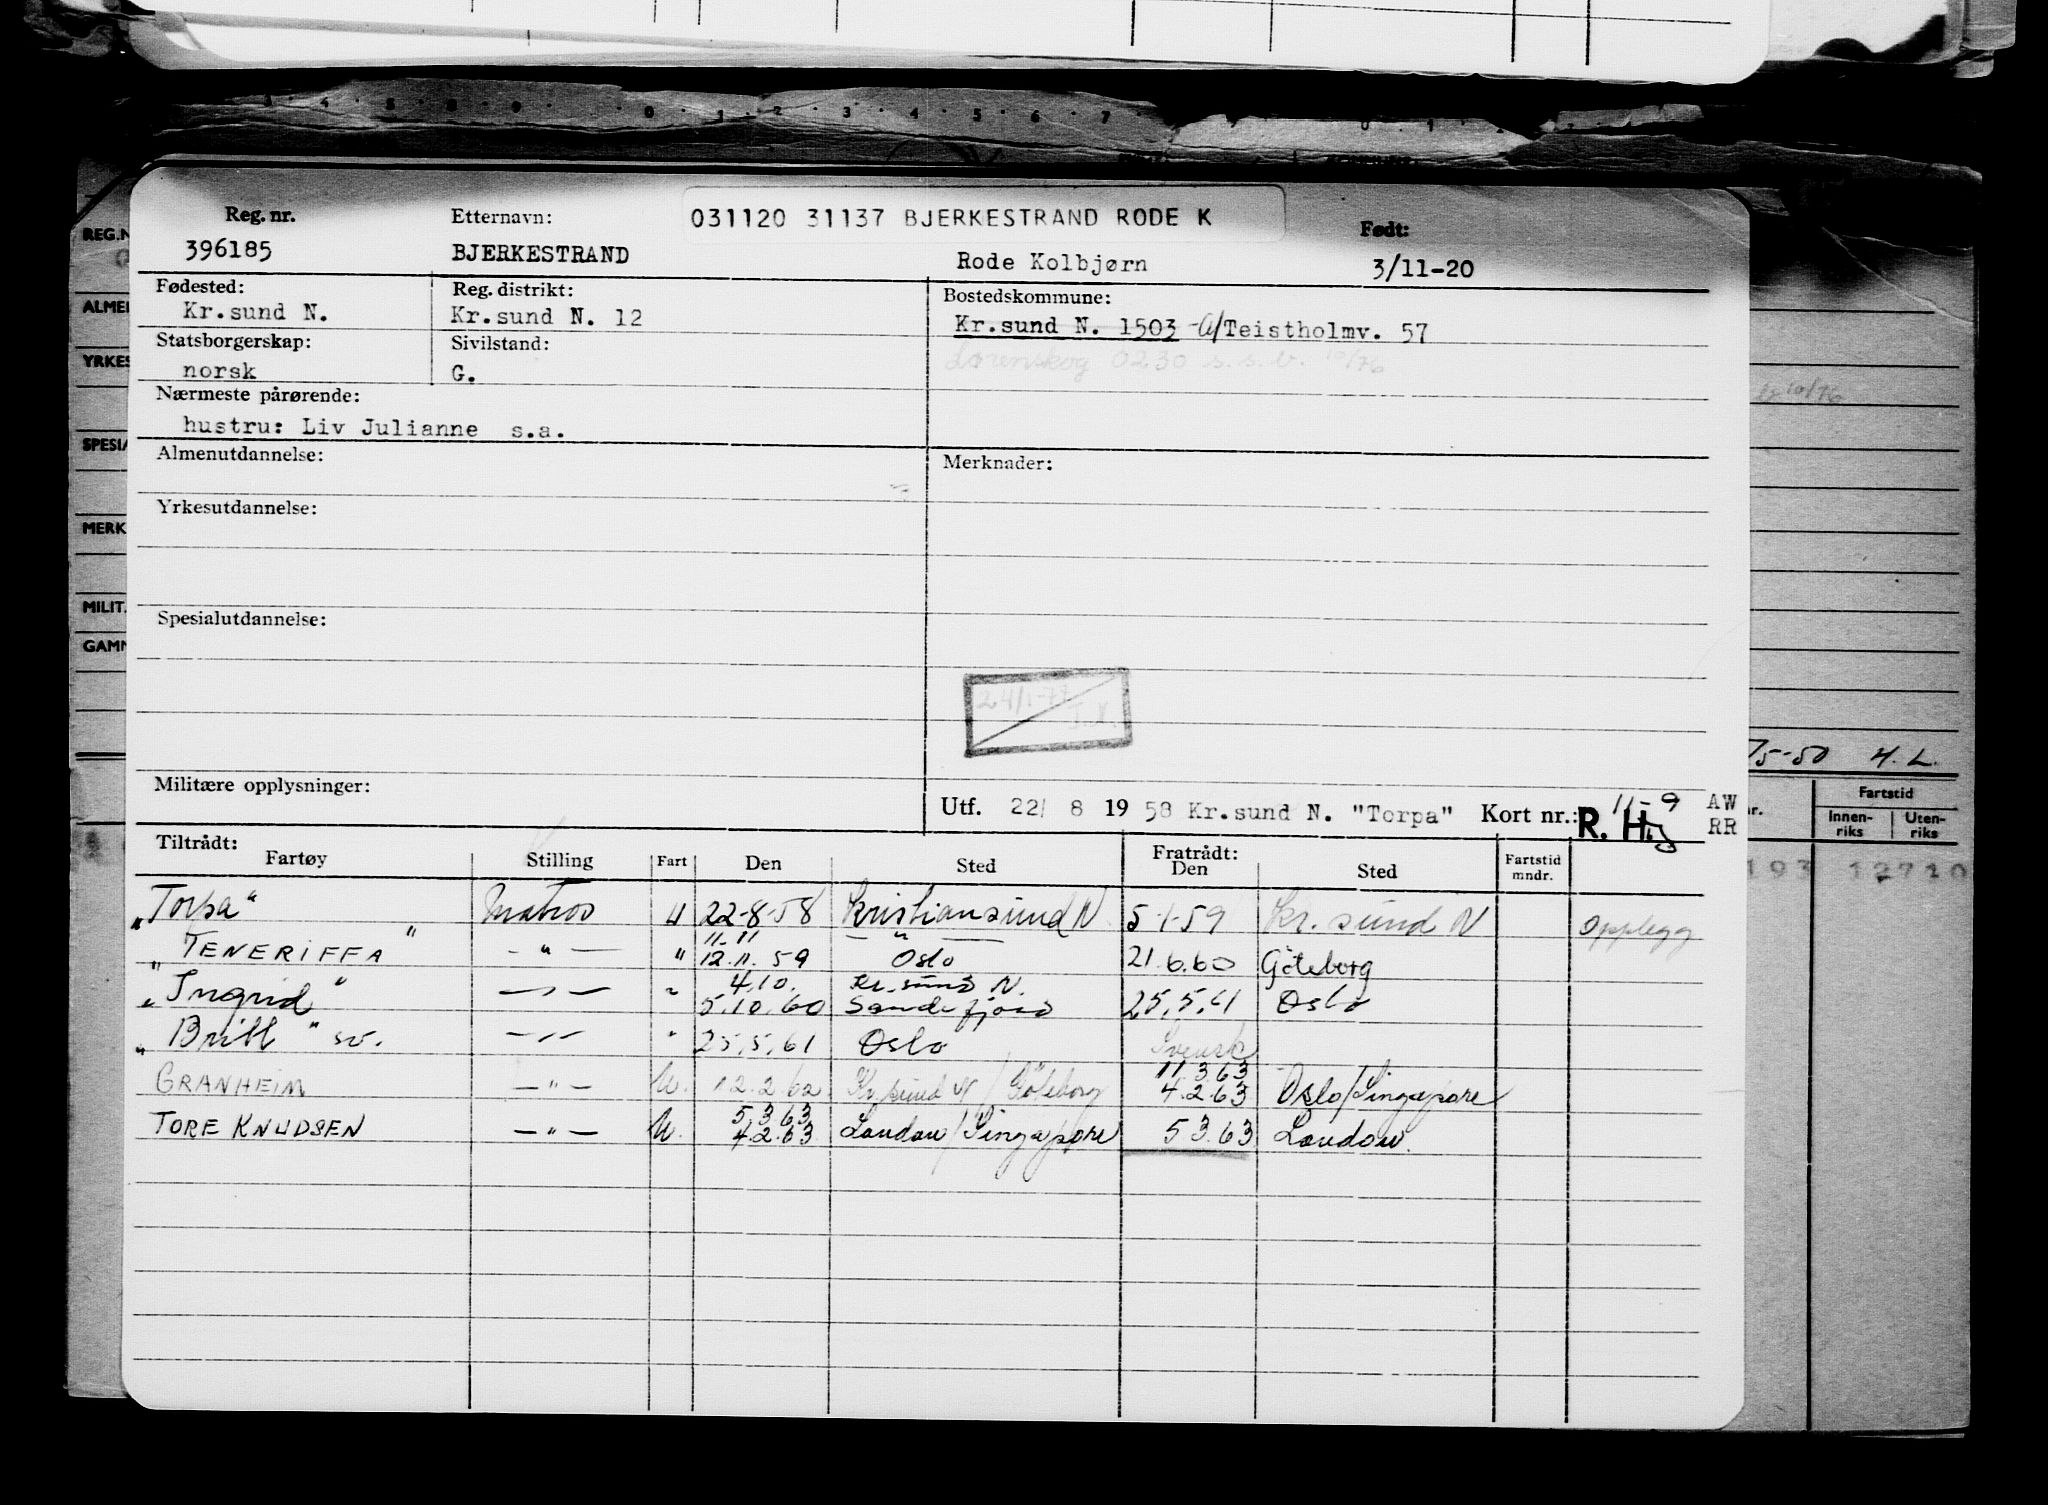 Reg. nr. Etternavn: 031120 31137 BJERKESTRAND RODE K Født:
396185 BJERKESTRAND Rode Kolbjørn 3/11-20
Fødested: Reg. distrikt: Bostedskommune:
Kr.sund N. Kr.sund N. 12 Kr.sund N. 1503 - a/Teistholmv. 57
Statsborgerskap: Sivilstand: Lørenskog 0230 s.s.b. 10/76
norsk G.
Nærmeste pårørende:
hustru: Liv Julianne s.a.
Almenutdannelse: Merknader:
Yrkesutdannelse:
Spesialutdannelse:
24/1-77
Militære opplysninger:
Utf. 22/ 8 19 58 Kr.sund N. "Torpa" Kort nr.: R. 11-9 AW
RR
Tiltrådt: Fratrådt:
Fartøy Stilling Fart Den Sted Den Sted Fartstid mndr.
"Torpa" Matros U 22-8-58 Kristiansund N 5-1-59 Kr. sund N Opplegg
"TENERIFFA" - " - " 11.11 12.11.59 " Oslo 21.6.60 Göteborg
"Ingrid" - " - " 4.10. 5.10.60 Kr.sund N. Sandefjord 25.5.61 Oslo
"Britt" sv. - " - " 25.5.61 Oslo Svensk
GRANHEIM - " - U. 12.2.62 Kr.sund N / Göteborg 11.3.63 4.2.63 Oslo/Singapore
TORE KNUDSEN - " - U. 5.3.63 4.2.63 London/Singapore 5.3.63 London.
REG.N
ALMEN
YRKES
SPESIA
MERK
MILIT.
GAMM
10/76
75-50 H.L.
nr. Fartstid
Innen-riks Uten-riks
193 12710